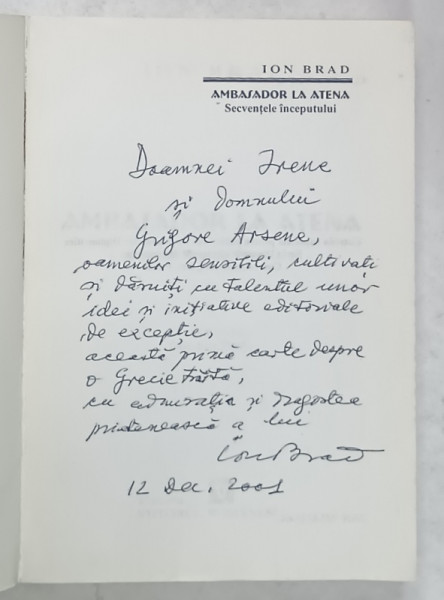 ION BRAD
AMBASADOR LA ATENA
Secvențele începutului
Doamnei Irene
și Domnului
Grigore Arsene,
oamenilor sensibili, cultivați
și dăruiți cu talentul unor
idei și inițiative editoriale
de excepție,
această primă carte despre
o Grecie trăită,
cu admirația și dragostea
prietenească a lui
Ion Brad
12 Dec. 2001